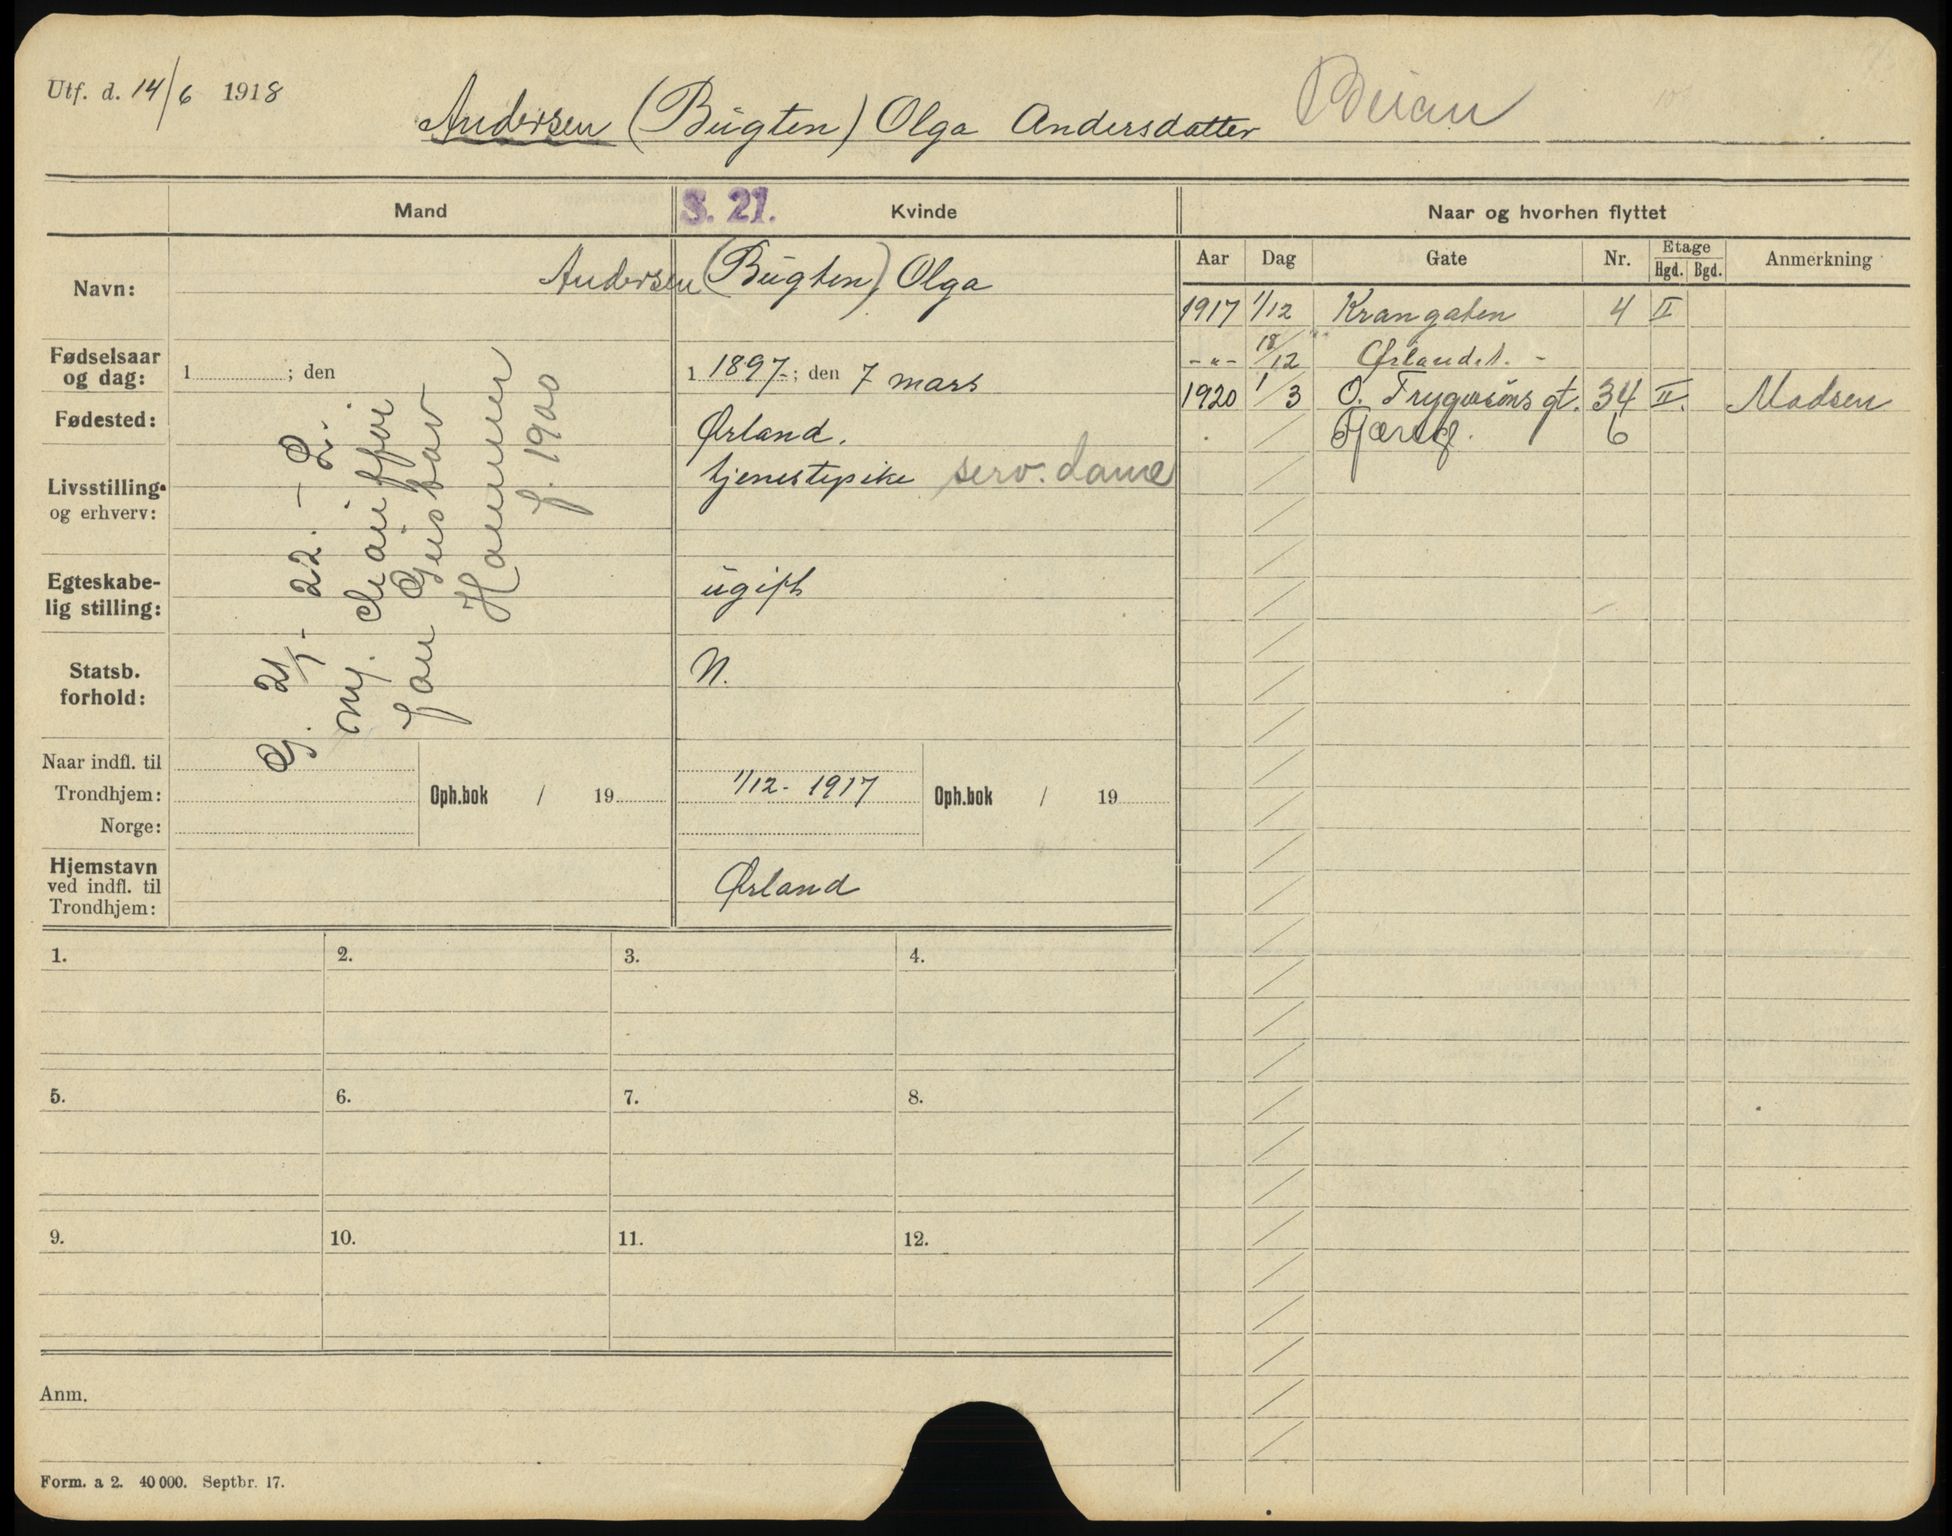 Utf. d. 14/6 1918
Andersen (Bugten) Olga Andersdatter Beian
Mand
S. 21.
Kvinde
Naar og hvorhen flyttet
Aar Dag Gate Nr. Etage Hgd. Bgd. Anmerkning
Navn: Andersen (Bugten) Olga
Fødselsaar og dag: 1 ; den 1 1897 ; den 7 mars
Fødested: Ørland.
Livsstilling og erhverv: tjenestepike serv. dame
Egteskabelig stilling: ugift
Statsb. forhold: N.
G. 21/7- 22. - 2.
m/. chauffør
Jan Gustav
Hammer
f. 1900
Naar indfl. til
Trondhjem: Oph.bok / 19 1/12- 1917 Oph.bok / 19
Norge:
Hjemstavn
ved indfl. til
Trondhjem: Ørland
1917 1/12 Krangaten 4 II
-"- 18/12 Ørlandet. -
1920 1/3 O. Trygvasøns gt. 34 II. Madsen
6
1. 2. 3. 4.
5. 6. 7. 8.
9. 10. 11. 12.
Anm.
Form. a 2. 40 000. Septbr. 17.